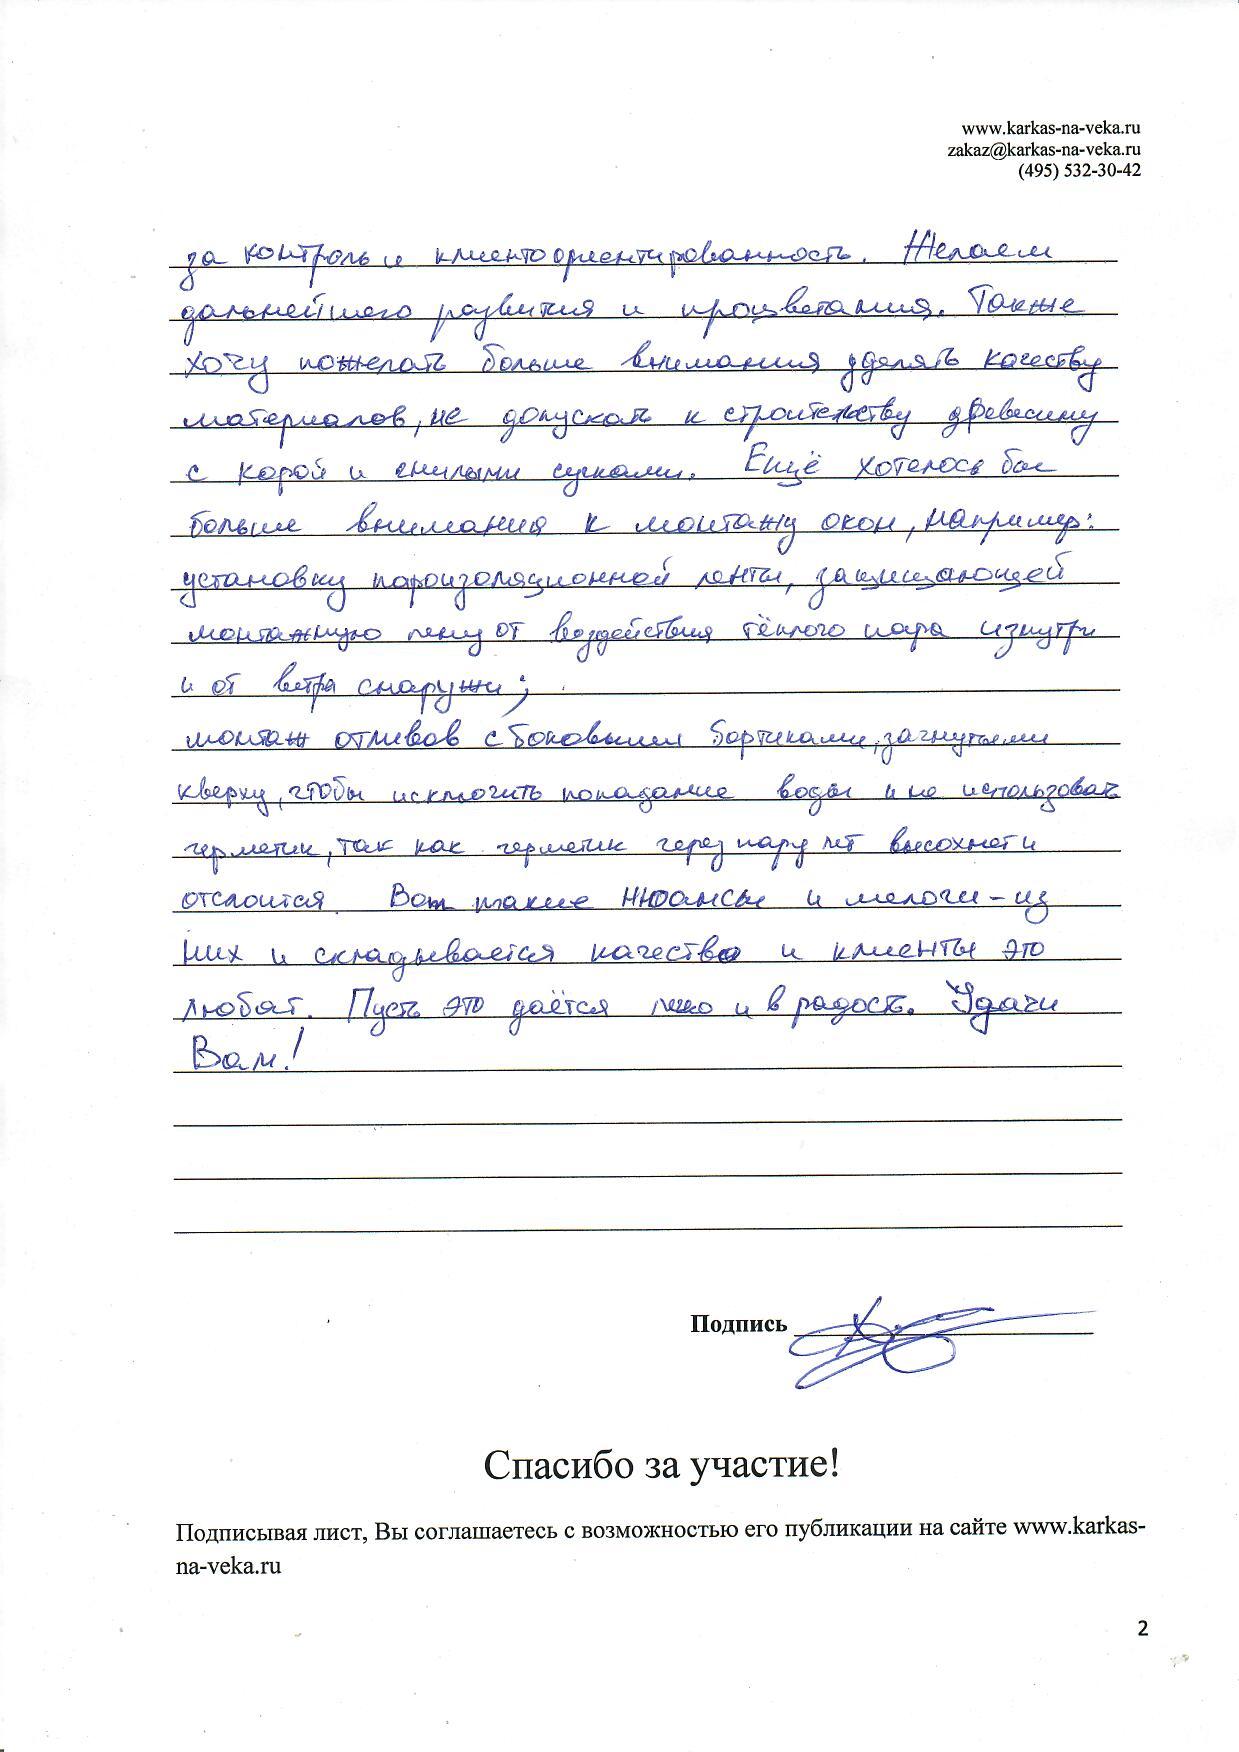 www.karkas-na-veka.ru
zakaz@karkas-na-veka.ru
(495) 532-30-42
за контроль и клиентоориентированность. Желаем
дальнейшего развития и процветания. Также
хочу пожелать больше внимания уделять качеству
материалов, не допускать к строительству древесину
с корой и гнилыми сучками. Ещё хотелось бы
больше внимания к монтажу окон, например:
установку пароизоляционной ленты, защищающей
монтажную пену от воздействия тёплого пара изнутри
и от ветра снаружи;
монтаж отливов с боковыми бортиками, загнутыми
кверху, чтобы исключить попадание воды и не использовать
герметик, так как герметик через пару лет высохнет и
отслоится Вот такие нюансы и мелочи - из
них и складывается качество и клиенты это
любят. Пусть это даётся легко и в радость. Удачи
Вам!
Подпись
Спасибо за участие!
Подписывая лист, Вы соглашаетесь с возможностью его публикации на сайте www.karkas-
na-veka.ru
2